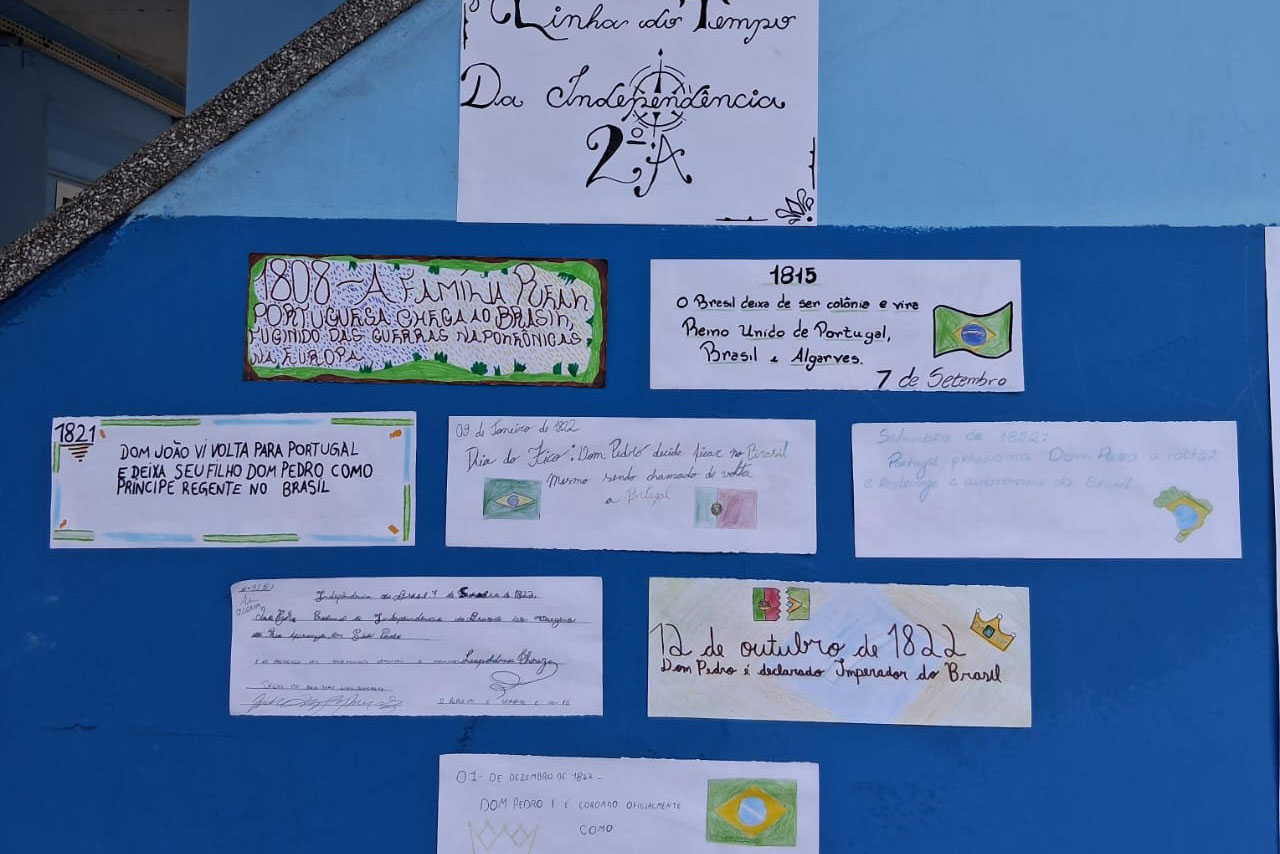 Linha do Tempo
Da Independência
2º A
1808 - A FAMÍLIA REAL
PORTUGUESA CHEGA AO BRASIL,
FUGINDO DAS GUERRAS NAPOLEÔNICAS
NA EUROPA
1815
O Brasil deixa de ser colônia e vira
Reino Unido de Portugal,
Brasil e Algarves.
7 de Setembro
1821
DOM JOÃO VI VOLTA PARA PORTUGAL
E DEIXA SEU FILHO DOM PEDRO COMO
PRÍNCIPE REGENTE NO BRASIL
09 de Janeiro de 1822
Dia do Fico: Dom Pedro decide ficar no Brasil
Mesmo sendo chamado de volta
a Portugal
Setembro de 1822:
Portugal pressiona Dom Pedro a voltar
e a autonomia do Brasil
Independência do Brasil 7 de 1822.
Independência do Brasil às margens
do Rio Ipiranga em São Paulo
Leopoldina
12 de outubro de 1822
Dom Pedro é declarado Imperador do Brasil
01 - DE DEZEMBRO DE 1822 -
DOM PEDRO I É COROADO OFICIALMENTE
COMO